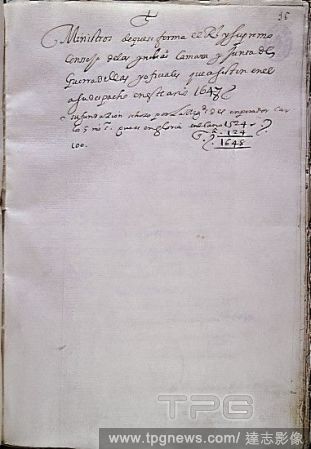 96
Ministros de que se forma el Rl y supremo
Consejo de las yndias Camara y Junta de
Guerra dellas y oficiales que asisten en el
a su despacho en este año 1647
su fundaçion se hizo por la Magd del emperador Car
los 5 nro sr. que es en gloria en el año 1524
124
1648
TPG
www.tpgnews.com/達志影像